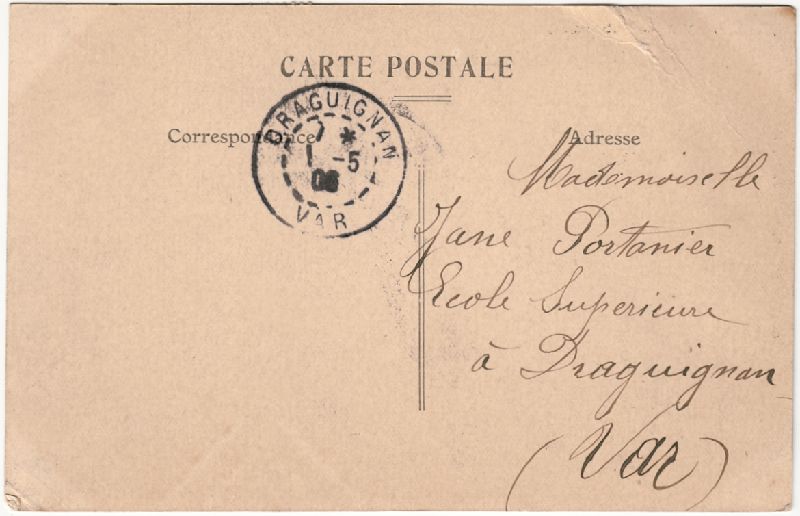 CARTE POSTALE
Correspondance
Adresse
DRAGUIGNAN
7 *
1 -5
06
VAR
Mademoiselle
Jane Portanier
Ecole Superieure
à Draguignan
(Var)